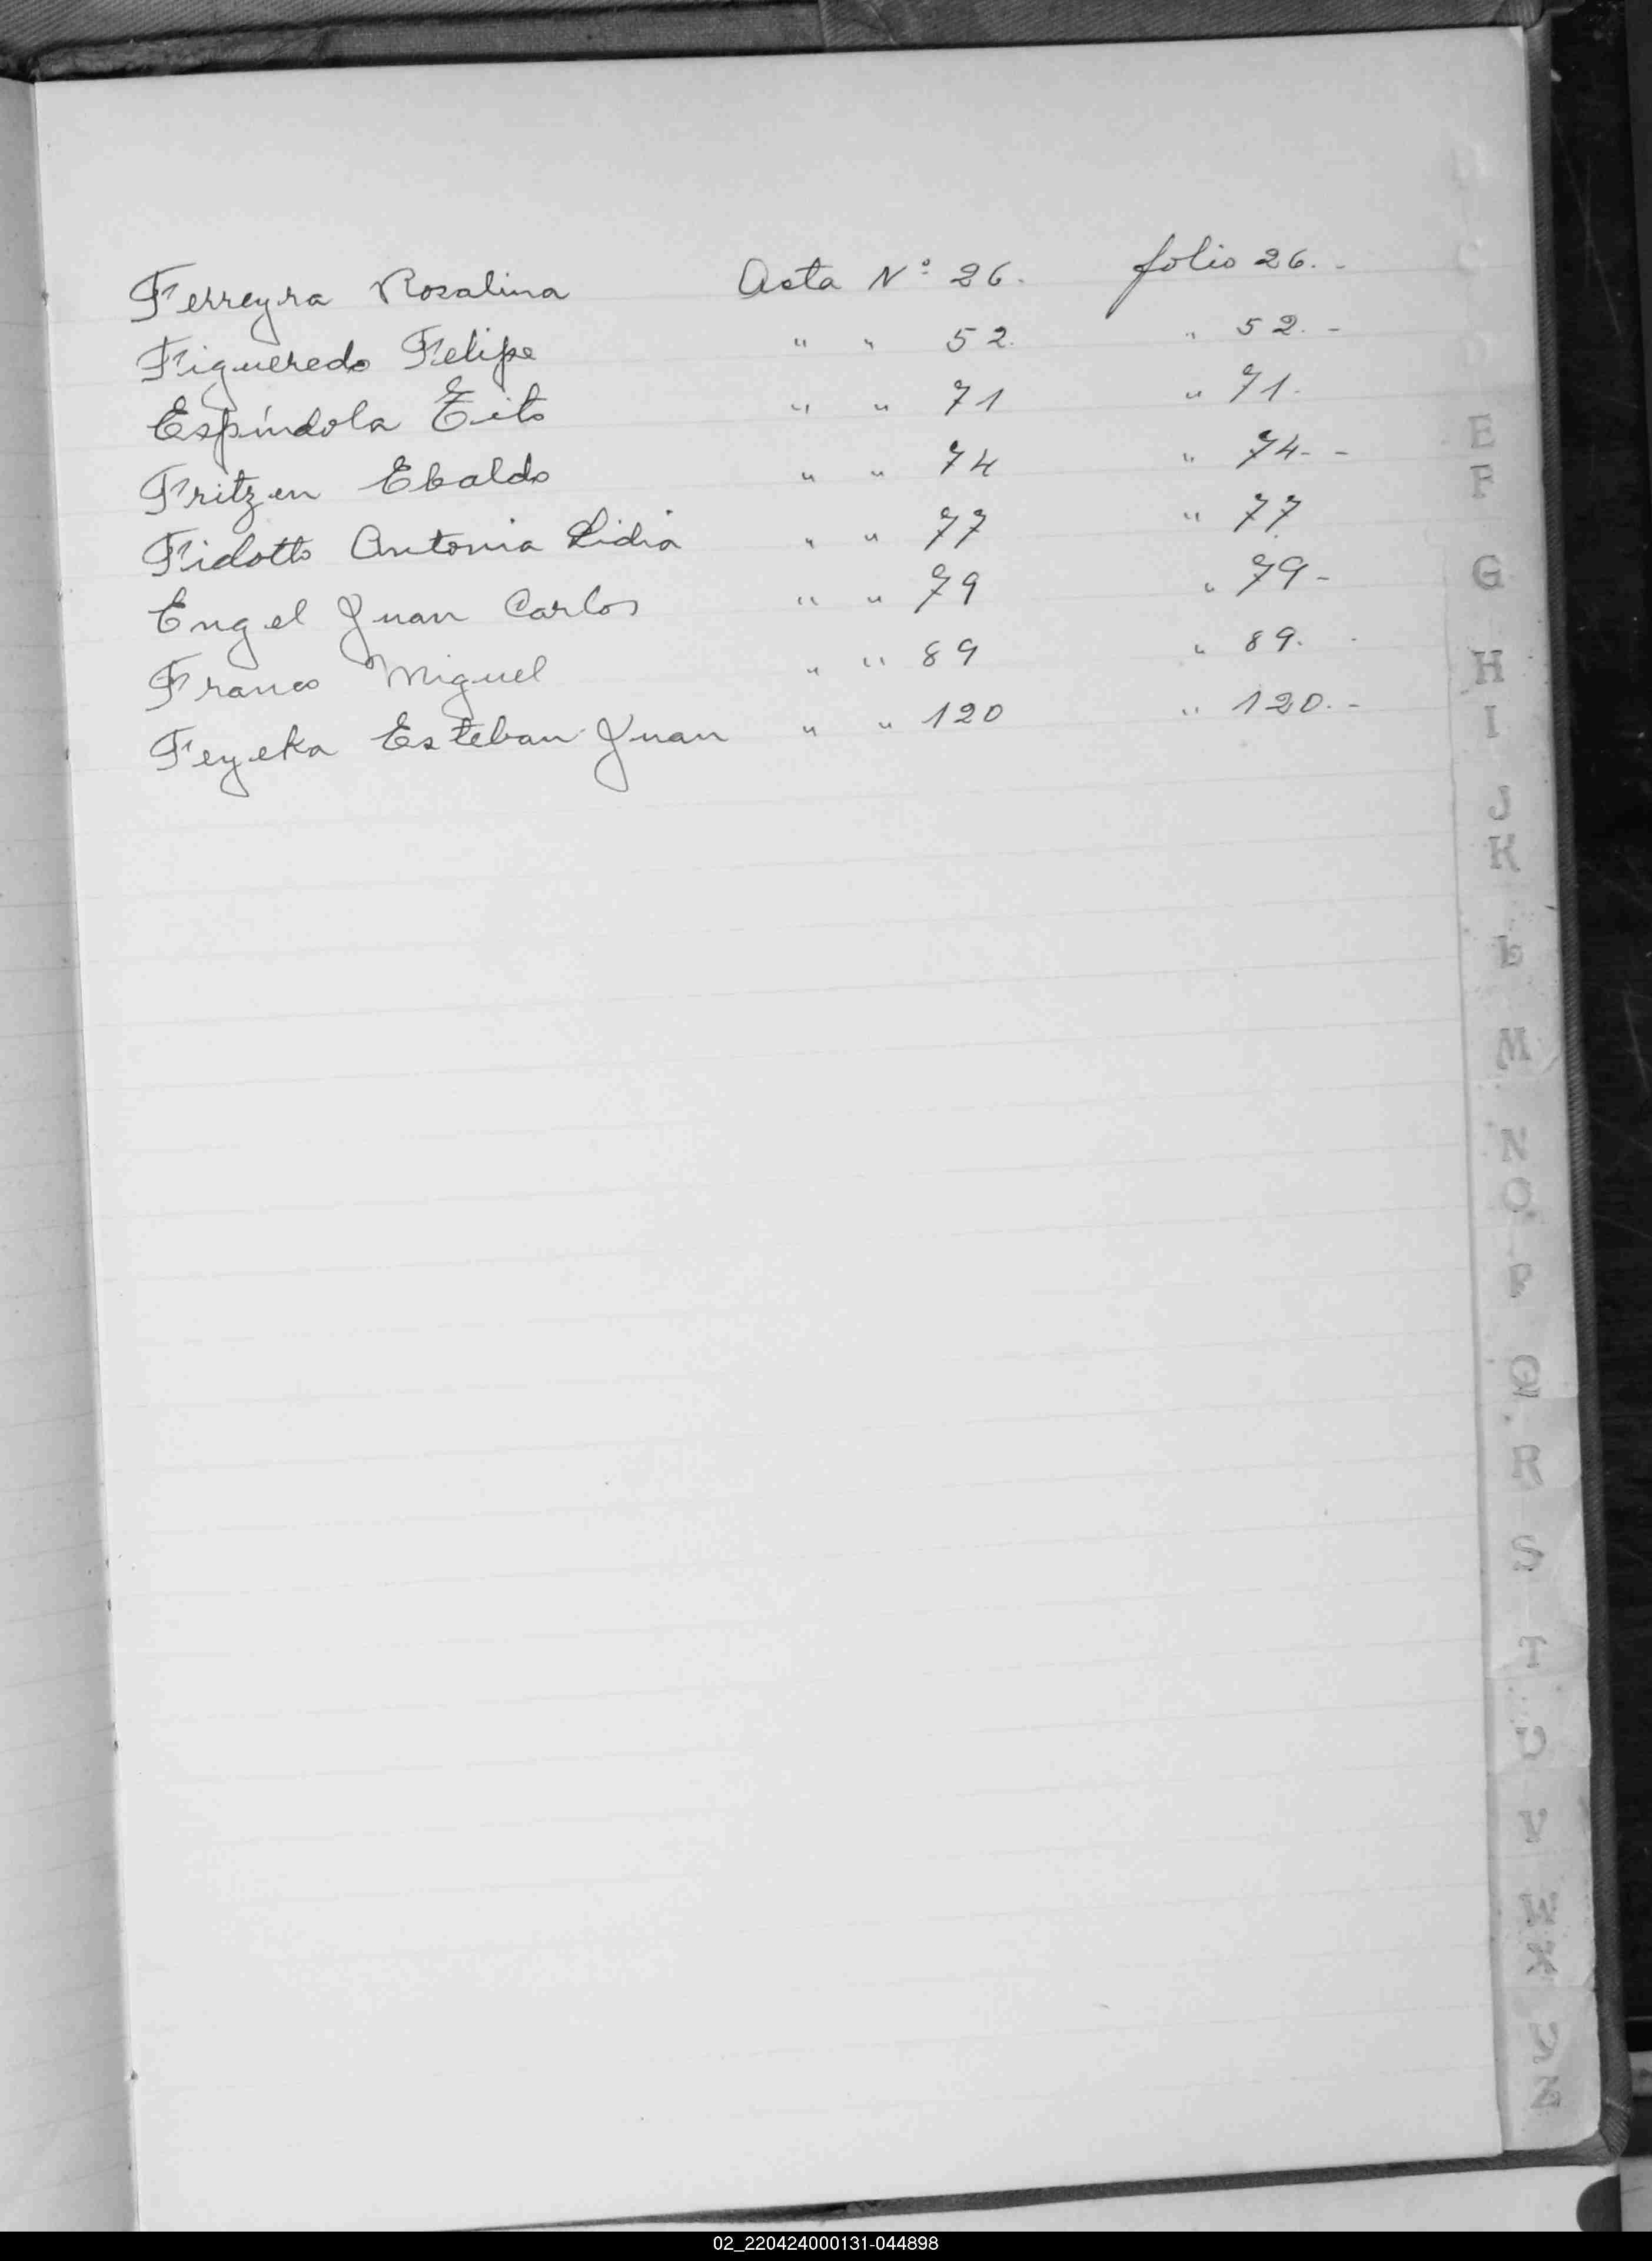 Ferreyra Rosalina Acta Nº 26. folio 26. -
Figueredo Felipe " " 52. " 52. -
Espíndola Tito " " 71 " 71.
Fritzen Ebaldo " " 74 " 74- -
Fidotto Antonia Lidia " " 77 " 77.
Engel Juan Carlos " " 79 " 79-
Franco Miguel " " 89 " 89.
Feyeka Esteban Juan " " 120 " 120. -
E
F
G
H
I
J
K
L
M
N
O
P
Q
R
S
T
U
V
X
02_220424000131-044898